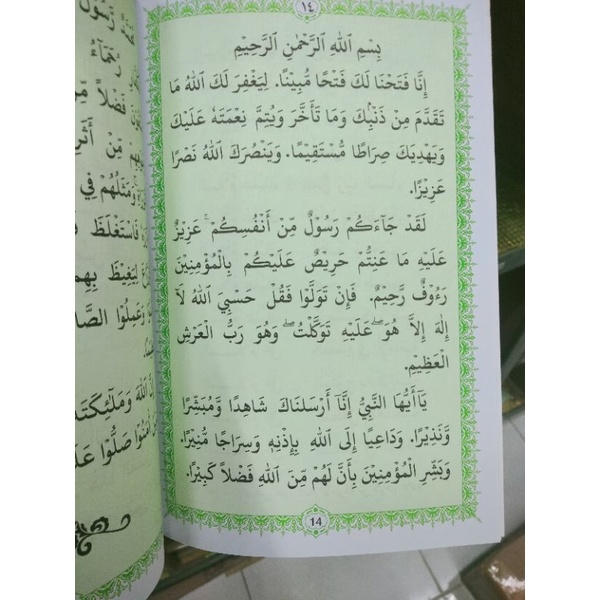 ١٤
بِسْمِ اللهِ الرَّحْمٰنِ الرَّحِيْمِ
إِنَّا فَتَحْنَا لَكَ فَتْحًا مُّبِيْنًا. لِيَغْفِرَ لَكَ اللهُ مَا
تَقَدَّمَ مِنْ ذَنْبِكَ وَمَا تَأَخَّرَ وَيُتِمَّ نِعْمَتَهٗ عَلَيْكَ
وَيَهْدِيَكَ صِرَاطًا مُّسْتَقِيْمًا. وَيَنْصُرَكَ اللهُ نَصْرًا
عَزِيْزًا.
لَقَدْ جَاۤءَكُمْ رَسُوْلٌ مِّنْ أَنْفُسِكُمْ ۚ عَزِيْزٌ
عَلَيْهِ مَا عَنِتُّمْ حَرِيْصٌ عَلَيْكُمْ بِالْمُؤْمِنِيْنَ
رَءُوْفٌ رَّحِيْمٌ. فَإِنْ تَوَلَّوْا فَقُلْ حَسْبِيَ اللهُ لَآ
إِلٰهَ إِلَّا هُوَ ۖ عَلَيْهِ تَوَكَّلْتُ ۖ وَهُوَ رَبُّ الْعَرْشِ
الْعَظِيْمِ.
يَآأَيُّهَا النَّبِيُّ إِنَّآ أَرْسَلْنَاكَ شَاهِدًا وَّمُبَشِّرًا
وَّنَذِيْرًا. وَدَاعِيًا إِلَى اللهِ بِإِذْنِهٖ وَسِرَاجًا مُّنِيْرًا.
وَبَشِّرِ الْمُؤْمِنِيْنَ بِأَنَّ لَهُمْ مِّنَ اللهِ فَضْلًا كَبِيْرًا.
14
رَّسُوْلُ
رُحَمَآءُ
فَضْلًا مِّنَ
مِّنْ أَثَرِ
وَمَثَلُهُمْ فِي
فَاسْتَغْلَظَ
لِيَغِيْظَ بِهِمُ
وَعَمِلُوا
اللهَ وَمَلَآئِكَتَهٗ
صَلُّوْا